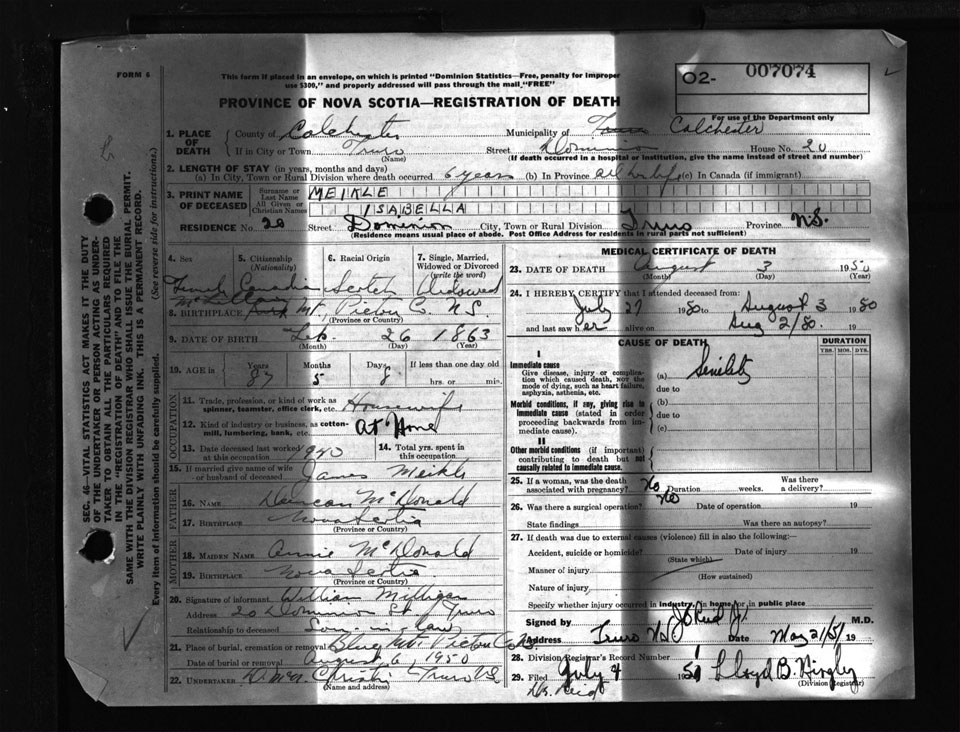 FORM 6
This form if placed in an envelope, on which is printed "Dominion Statistics—Free, penalty for improper
use $300," and properly addressed will pass through the mail "FREE"
PROVINCE OF NOVA SCOTIA—REGISTRATION OF DEATH
02- 007074
For use of the Department only
1. PLACE OF DEATH
County of Colchester Municipality of Colchester
If in City or Town Truro (Name) Street Dominion House No. 20
(If death occurred in a hospital or institution, give the name instead of street and number)
2. LENGTH OF STAY (in years, months and days)
(a) In City, Town or Rural Division where death occurred 6 years (b) In Province all her life (c) In Canada (if immigrant)
3. PRINT NAME OF DECEASED
Surname or Last Name MEIKLE
All Given or Christian Names ISABELLA
RESIDENCE No. 20 Street Dominion City, Town or Rural Division Truro Province N.S.
(Residence means usual place of abode. Post Office Address for residents in rural parts not sufficient)
4. Sex
5. Citizenship (Nationality)
6. Racial Origin
7. Single, Married, Widowed or Divorced (write the word)
Canadian Scotch Widowed
8. BIRTHPLACE Mt. Pictou C. N.S.
(Province or Country)
9. DATE OF BIRTH 26 1863
(Month) (Day) (Year)
10. AGE is Years Months Days If less than one day old
5 8 hrs. or min.
OCCUPATION
11. Trade, profession, or kind of work as spinner, teamster, office clerk, etc. Housewife
12. Kind of industry or business, as cotton-mill, lumbering, bank, etc. At Home
13. Date deceased last worked at this occupation 1940
14. Total yrs. spent in this occupation
15. If married give name of wife or husband of deceased James Meikle
FATHER
16. NAME Duncan McDonald
17. BIRTHPLACE Nova Scotia
(Province or Country)
MOTHER
18. MAIDEN NAME Annie McDonald
19. BIRTHPLACE Nova Scotia
(Province or Country)
20. Signature of informant William Milligan
Address 20 Dominion St. Truro
Relationship to deceased Son-in-law
21. Place of burial, cremation or removal Blue Mt. Pictou Co.
Date of burial or removal August 6 1950
22. UNDERTAKER Truro N.S.
(Name and address)
MEDICAL CERTIFICATE OF DEATH
23. DATE OF DEATH August 3 1950
(Month) (Day) (Year)
24. I HEREBY CERTIFY that I attended deceased from:
July 27 1950 to August 3 1950
and last saw her alive on Aug 2/50. 19
CAUSE OF DEATH
DURATION
YRS. MOS. DYS.
I
Immediate cause
Give disease, injury or complication which caused death, not the mode of dying, such as heart failure, asphyxia, asthenia, etc.
(a) Senility
due to
Morbid conditions, if any, giving rise to immediate cause (stated in order proceeding backwards from immediate cause).
(b)
due to
(c)
II
Other morbid conditions (if important) contributing to death but not causally related to immediate cause.
25. If a woman, was the death associated with pregnancy? No Duration weeks. Was there a delivery?
26. Was there a surgical operation? No Date of operation 19
State findings Was there an autopsy?
27. If death was due to external causes (violence) fill in also the following:—
Accident, suicide or homicide? (State which) Date of injury 19
Manner of injury (How sustained)
Nature of injury
Specify whether injury occurred in industry, in home, or in public place
Signed by M.D.
Address Truro N.S. Date May 21/51 19
28. Division Registrar's Record Number
29. Filed July 4 19 Lloyd B.
(Division Registrar)
SEC. 46—VITAL STATISTICS ACT MAKES IT THE DUTY
OF THE UNDERTAKER OR PERSON ACTING AS UNDER-
TAKER TO OBTAIN ALL THE PARTICULARS REQUIRED
IN THE "REGISTRATION OF DEATH" AND TO FILE THE
SAME WITH THE DIVISION REGISTRAR WHO SHALL ISSUE THE BURIAL PERMIT.
WRITE PLAINLY WITH UNFADING INK. THIS IS A PERMANENT RECORD.
Every item of information should be carefully supplied. (See reverse side for instructions.)